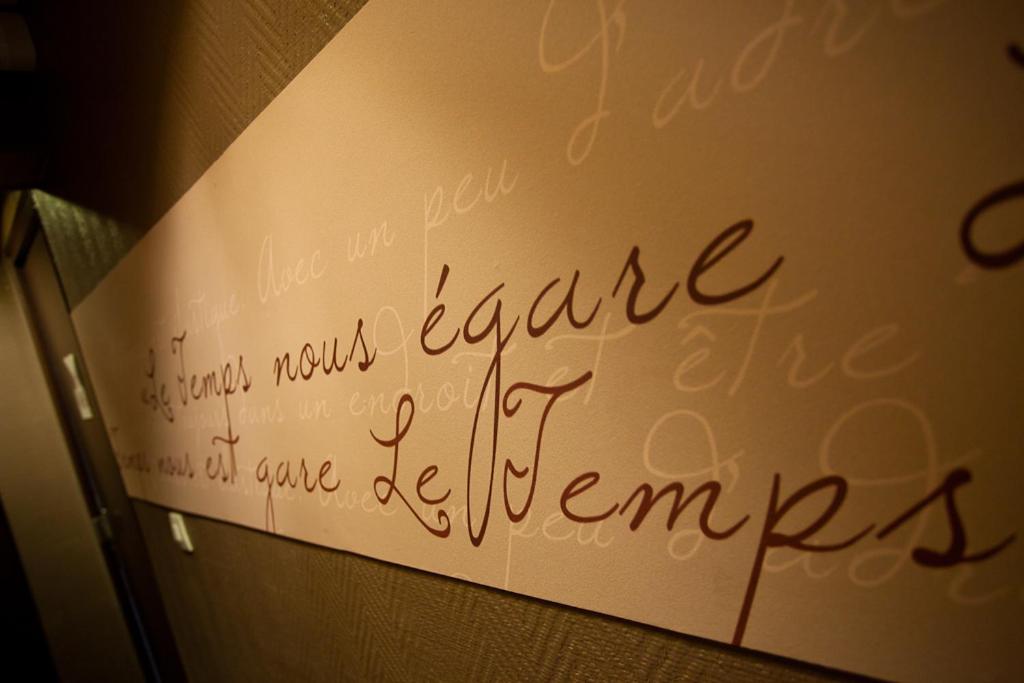 J'adre
Avec un peu
Le Temps nous égare
dans un endroit et être
nous est gare Le Temps
Avec un peu J'adre